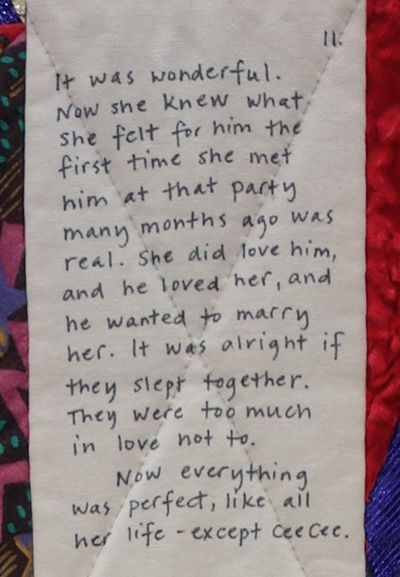 11.
It was wonderful.
Now she knew what
she felt for him the
first time she met
him at that party
many months ago was
real. She did love him,
and he loved her, and
he wanted to marry
her. It was alright if
they slept together.
They were too much
in love not to.
Now everything
was perfect, like all
her life - except CeeCee.